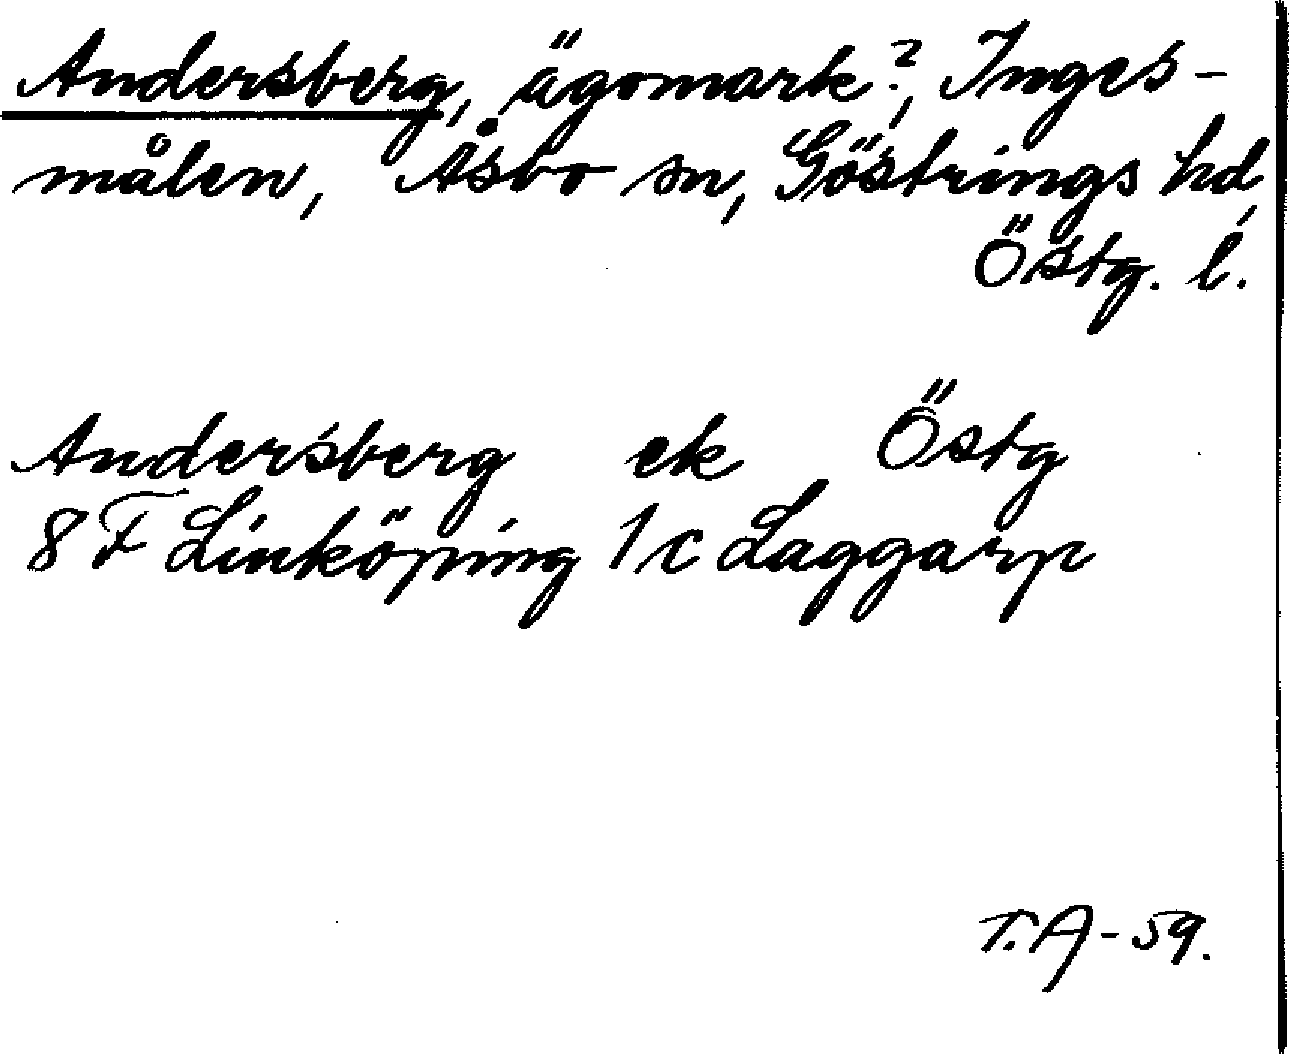 Andersberg, ägomark?, Inges-
målen, Åsbo sn, Göstrings hd,
Östg. l.
Andersberg ek Östg
8 F Linköping 1 c Laggarp
T.A-59.